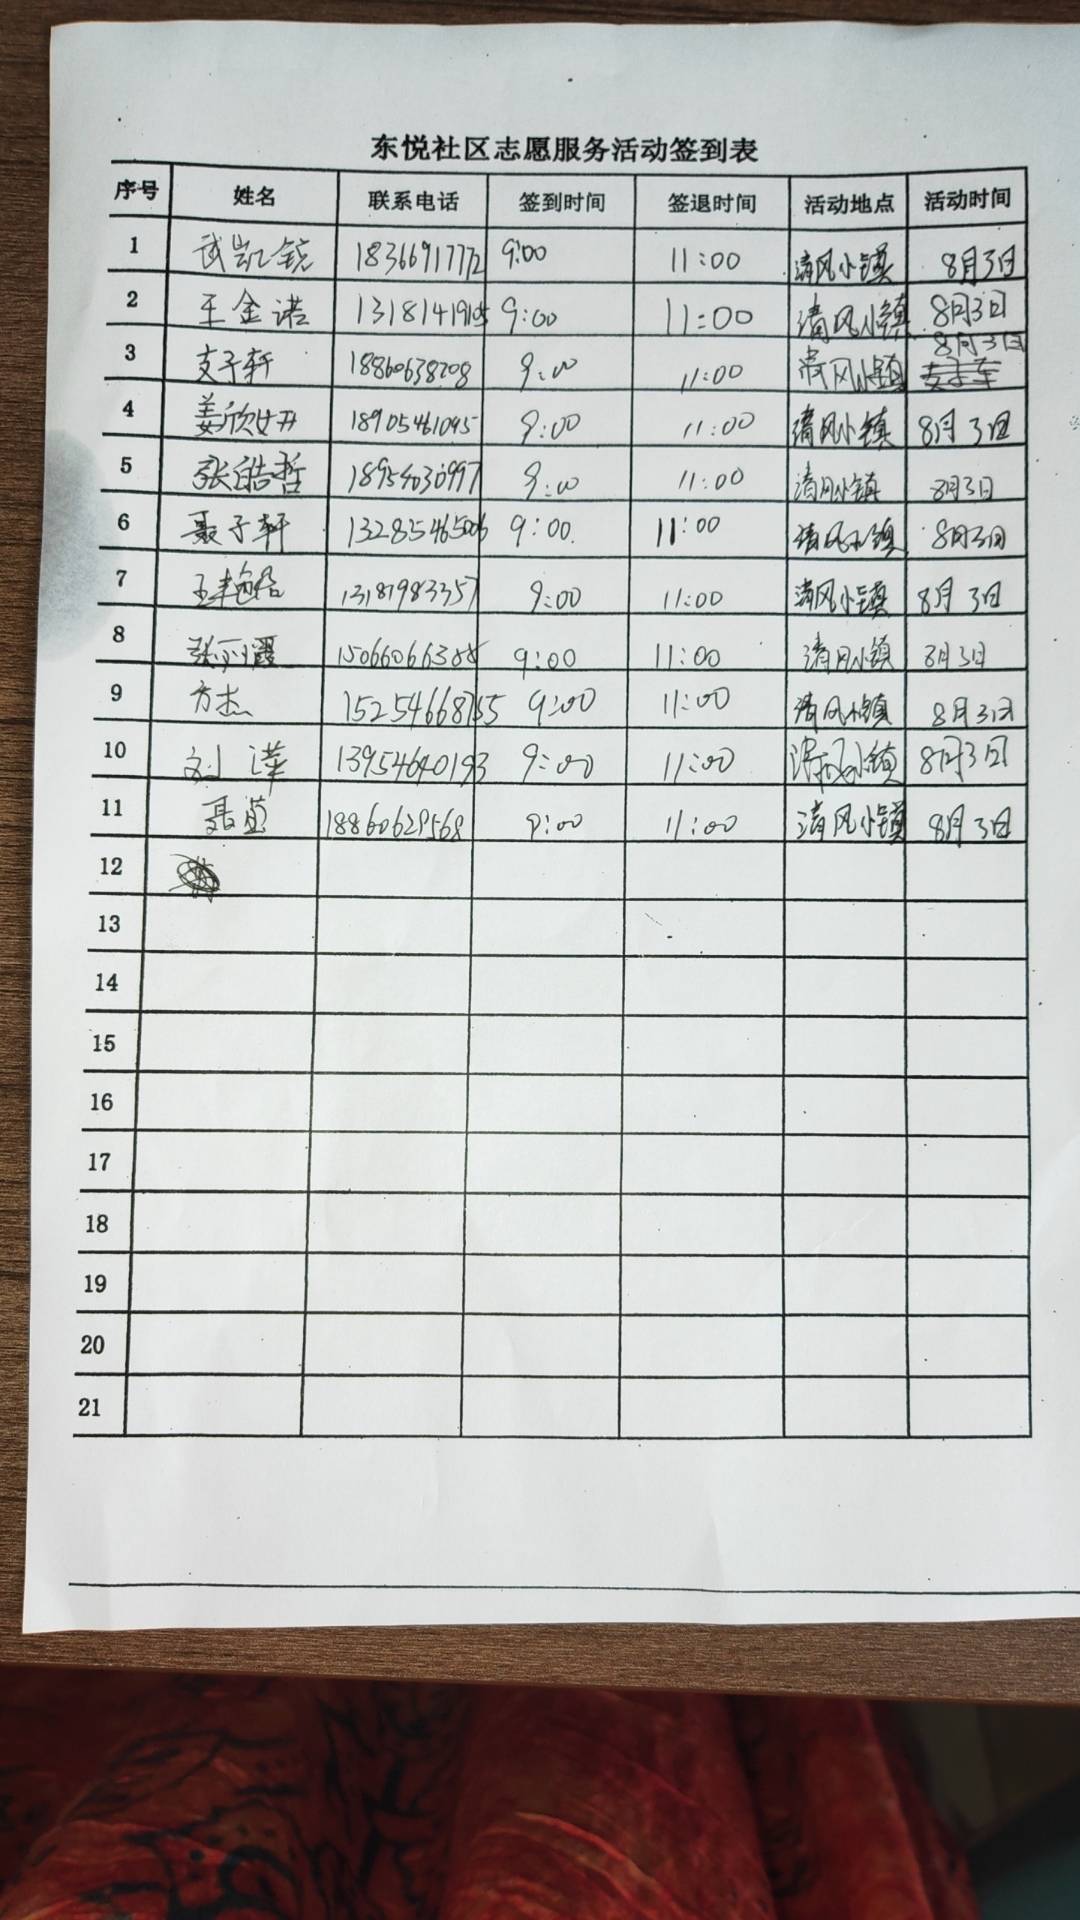 东悦社区志愿服务活动签到表
序号 姓名 联系电话 签到时间 签退时间 活动地点 活动时间
1 武凯锐 18366917772 9:00 11:00 清风小镇 8月3日
2 王金诺 13181419105 9:00 11:00 清风小镇 8月3日
3 支子轩 18860638208 9:00 11:00 清风小镇 8月3日
4 姜欣妍 18905461095 9:00 11:00 清风小镇 8月3日
5 张皓哲 18954630997 9:00 11:00 清风小镇 8月3日
6 聂子轩 13285465006 9:00 11:00 清风小镇 8月3日
7 13181983357 9:00 11:00 清风小镇 8月3日
8 张丽霞 15066066388 9:00 11:00 清风小镇 8月3日
9 方杰 15254668755 9:00 11:00 清风小镇 8月3日
10 13954640193 9:00 11:00 清风小镇 8月3日
11 18860629568 9:00 11:00 清风小镇 8月3日
12
13
14
15
16
17
18
19
20
21